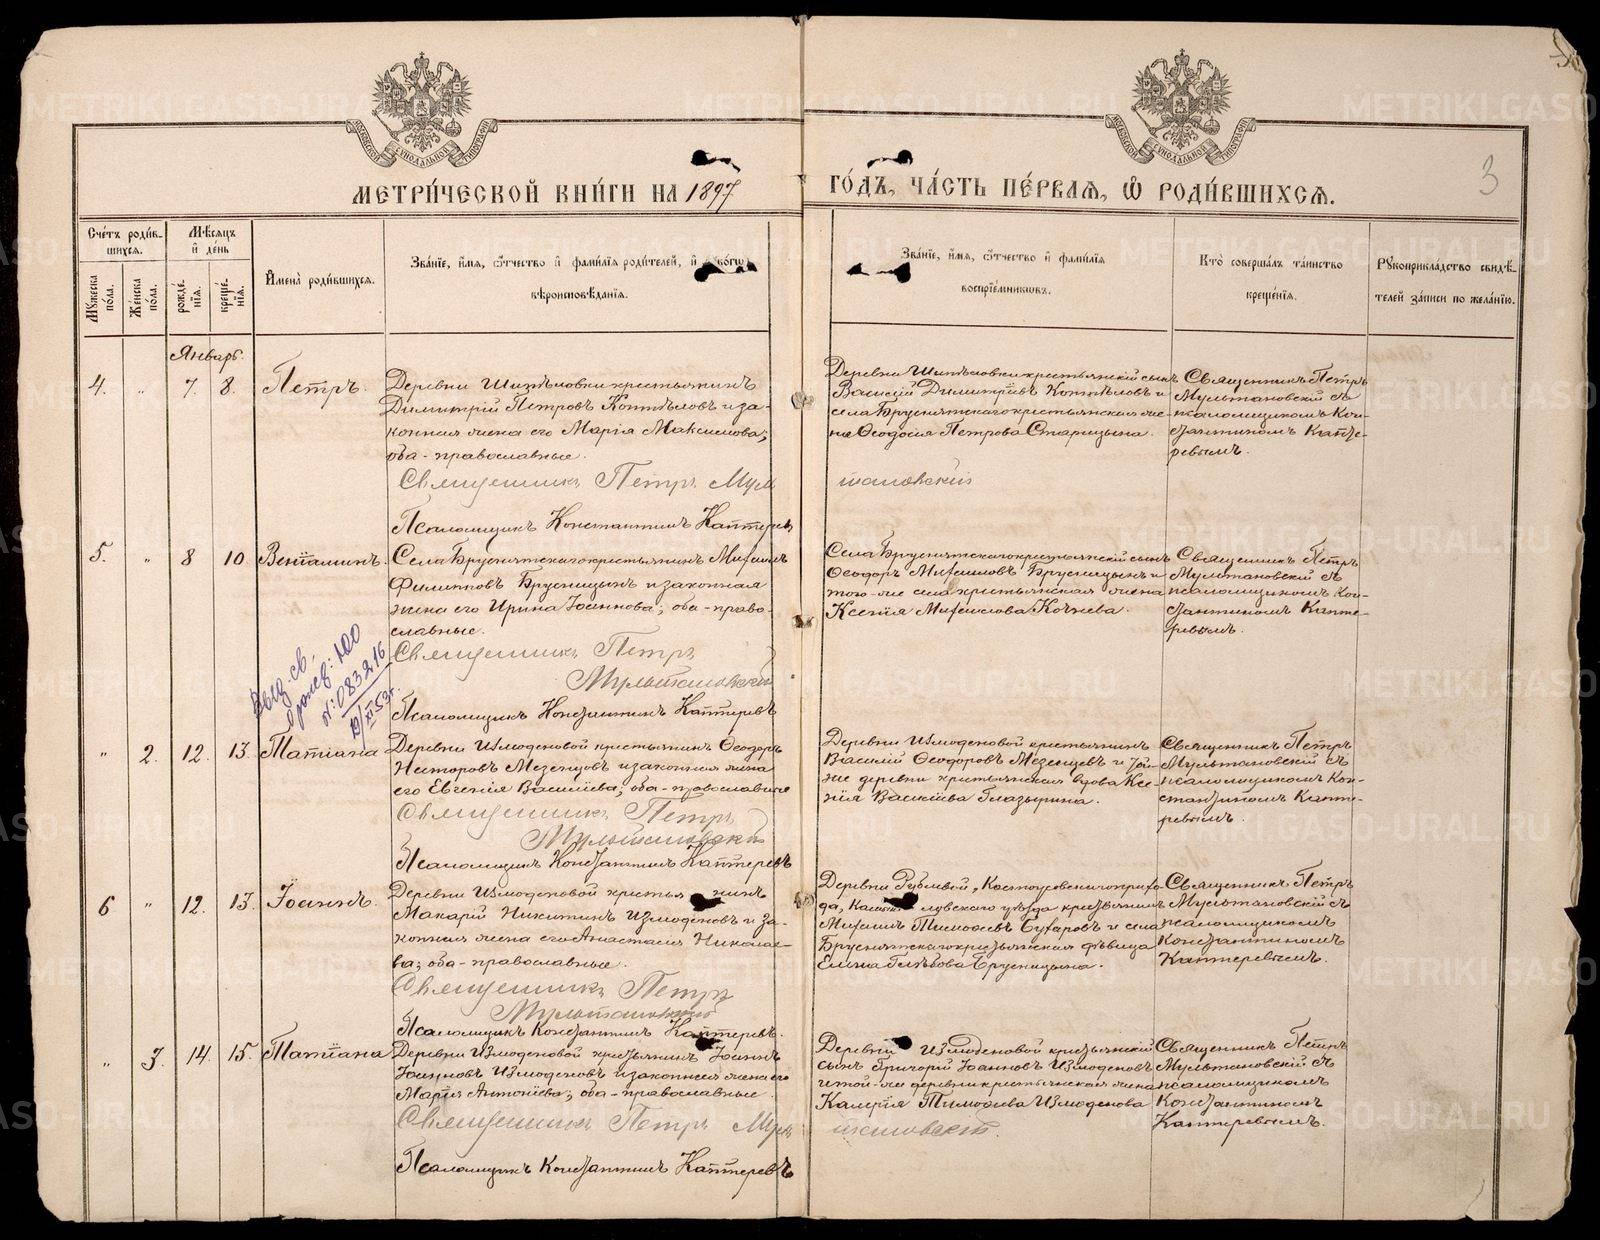 МЕТРИ́ЧЕСКОЙ КНИ́ГИ НА 1897 ГО́ДЪ, ЧА́СТЬ ПЕ́РВАЯ, Ѡ РОДИ́ВШИХСЯ.
3
Сче́тъ роди́в-
шихся.
Му́жеска по́ла.
Же́нска по́ла.
Мѣ́сяцъ
и де́нь
рожде́-
нія.
креще́-
нія.
Имена̀ роди́вшихся.
Зва́ніе, и́мя, о́тчество и фами́лія роди́телей, и
вѣроисповѣ́данія.
Зва́ніе, и́мя, о́тчество и фами́лія
воспріе́мниковъ.
Кто̀ соверша́лъ та́инство
креще́нія.
Рукоприкла́дство свидѣ́-
телей за́писи по жела́нію.
Январь.
4. " 7 8. Петръ.
Деревни Шипѣловки крестьянинъ
Димитрій Петровъ Коптѣловъ и за-
конная жена его Марія Максимова;
оба - православные.
Священникъ Петръ Мультановскій
Псаломщикъ Константинъ Каптеревъ
Деревни Шипѣловки крестьянскій сынъ
Василій Димитріевъ Коптѣловъ и
села Брусянтскаго крестьянская же-
на Ѳеодосія Петрова Старицына.
Священникъ Петръ
Мультановскій съ
псаломщикомъ Кон-
стантиномъ Капте-
ревымъ.
5. " 8 10 Веніаминъ.
Села Брусянтскаго крестьянинъ Михаилъ
Филипповъ Брусницынъ и законная
жена его Ирина Іоаннова; оба - право-
славные.
Священникъ Петръ
Мультановскій
Псаломщикъ Константинъ Каптеревъ
Села Брусянтскаго крестьянскій сынъ
Ѳеодоръ Михаиловъ Брусницынъ и
того-же села крестьянская жена
Ксенія Михаилова Кочнева.
Священникъ Петръ
Мультановскій съ
псаломщикомъ Кон-
стантиномъ Капте-
ревымъ.
Выд. св.
о рожд: ЮО
№: 083216
12/XI 53 г.
" 2. 12. 13. Татіана
Деревни Измоденовой крестьянинъ Ѳеодоръ
Несторовъ Мезенцовъ и законная жена
его Евгенія Васильева; оба - православные
Священникъ Петръ
Мультановскій
Псаломщикъ Константинъ Каптеревъ
Деревни Измоденовой крестьянинъ
Василій Ѳеодоровъ Мезенцевъ и той-
же деревни крестьянская вдова Ксе-
нія Васильева Глазырина.
Священникъ Петръ
Мультановскій съ
псаломщикомъ Кон-
стантиномъ Капте-
ревымъ.
6 " 12. 13. Іоаннъ.
Деревни Измоденовой крестьянинъ
Макарій Никитинъ Измоденовъ и за-
конная жена его Анастасія Николае-
ва; оба - православные.
Священникъ Петръ
Мультановскій
Псаломщикъ Константинъ Каптеревъ.
Деревни Рублевой, Космоусовскаго прихо-
да, Камышловскаго уѣзда крестьянинъ
Михаилъ Тимоѳеевъ Бухаровъ и села
Брусянтскаго крестьянская дѣвица
Елена Глѣбова Брусницына.
Священникъ Петръ
Мультановскій съ
псаломщикомъ
Константиномъ
Каптеревымъ.
" 3. 14. 15. Татіана
Деревни Измоденовой крестьянинъ Іоаннъ
Іоанновъ Измоденовъ и законная жена его
Марія Антоніева; оба - православные.
Священникъ Петръ Мультановскій.
Псаломщикъ Константинъ Каптеревъ
Деревни Измоденовой крестьянскій
сынъ Григорій Іоанновъ Измоденовъ
и той-же деревни крестьянская жена
Калерія Тимоѳеева Измоденова
Священникъ Петръ
Мультановскій съ
псаломщикомъ
Константиномъ
Каптеревымъ.
METRIKI.GASO-URAL.RU